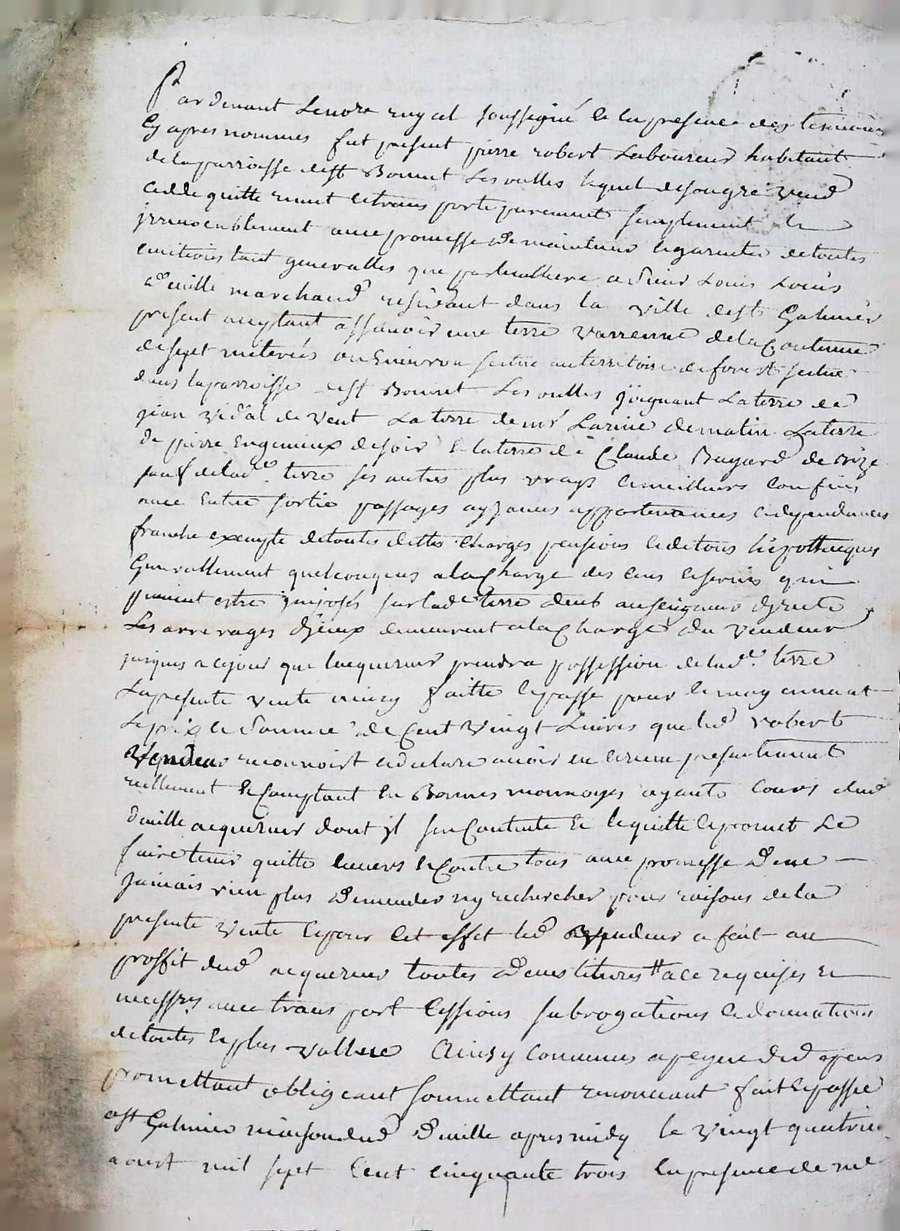 Pardevant Le notre royal soussigné & en presence des temoins
Cy apres nommés fut present pierre robert Laboureur habitant
de la parroisse de st Bonnet Les oulles lequel de son gré vend
cedde quitte remet et transporte purement simplement &
irrevocablement avec promesse de maintenir & garantir de toutes
evictions tant generalles que particulliere a Sieur Louis Loüis
marchand residant dans la ville de st Galmier
present acceptant assavoir une terre varrenne de la Contenue
de sept meterées ou Environ scitüe au territoire de forest scitüe
dans la parroisse de st Bonnet Les oulles joignant La terre de
jean vidal de vent La terre de mr Larine de matin La terre
de pierre Engenieux de soir & la terre de Claude Bayard de bize
sauf de lade terre ses autres plus vrays & meilleurs Confins
avec Entrée sortie passages ayzances appartenances & dependances
franche exempte de toutes dettes Charges pensions & de tous hipotheques
Generallement quelconques a la Charge des cens & servis qui
peuvent estre imposés sur lade terre deubs au seigneur
Les arrerages d'jceux demeurent a la Charge du vendeur
jusques a ce jour que lacquereur prendra possession de lade terre
La presente vente ainsy faitte & passé pour & moyennant
Le prix & somme de Cent vingt Livres que led robert
vendeur reconnoist & declare avoir eu & receu presentement
reellement & Comptant En Bonnes monnoyes ayants cours dud
acquereur dont jl sen Contente & le quitte & promet Le
faire tenir quitte Envers & Contre tous avec promesse de ne
jamais rien plus demender ny rechercher pour raisons de la
presente vente & pour Cet effet led vendeur a fait au
proffit dud acquereur toutes a ce requises et
necessres avec transport Cessions subrogations & donnations
de toutes & plus vallüe Ainsy Convenu a peyne de d
promettant obligeant soumettant renonceant fait & passé
a st Galmier maison dud apres midy le vingt quatrie
aoust mil sept Cent cinquante trois En presence de me